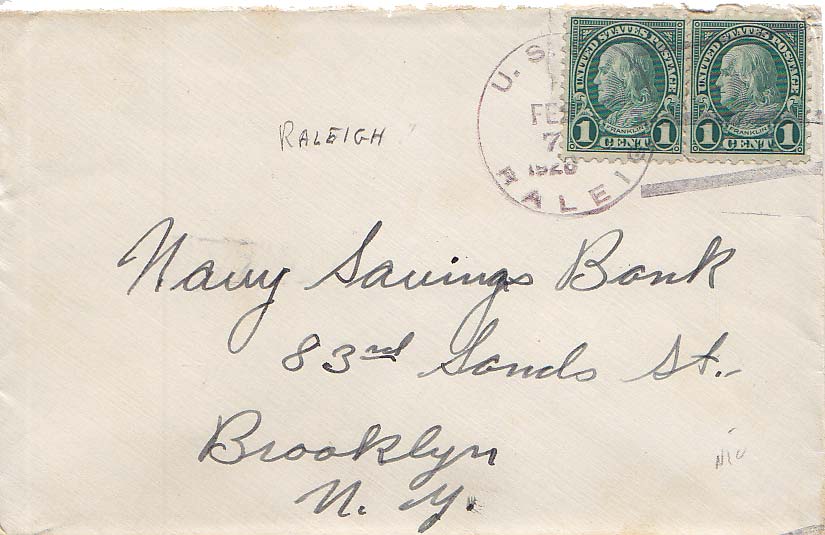 UNITED STATES POSTAGE UNITED STATES POSTAGE
FRANKLIN FRANKLIN
1 CENT 1 1 CENT 1
U. S.
FE
7
1928
RALEIG
RALEIGH
Navy Savings Bank
83rd Sands St.
Brooklyn
N. Y.